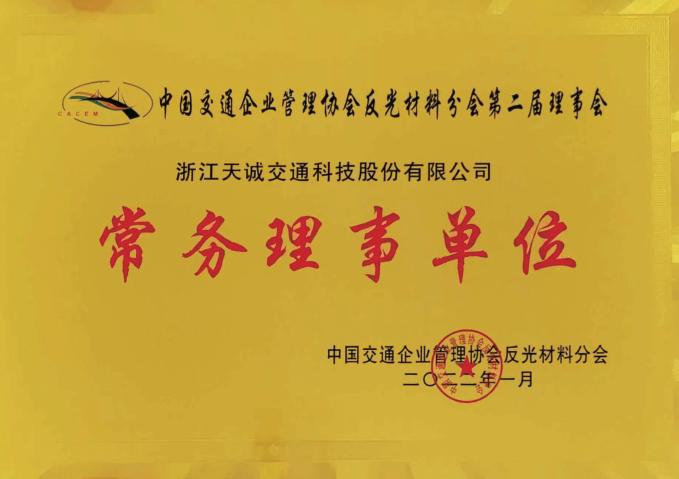 中国交通企业管理协会反光材料分会第二届理事会
CACEM
浙江天诚交通科技股份有限公司
常务理事单位
中国交通企业管理协会反光材料分会
二〇二二年一月